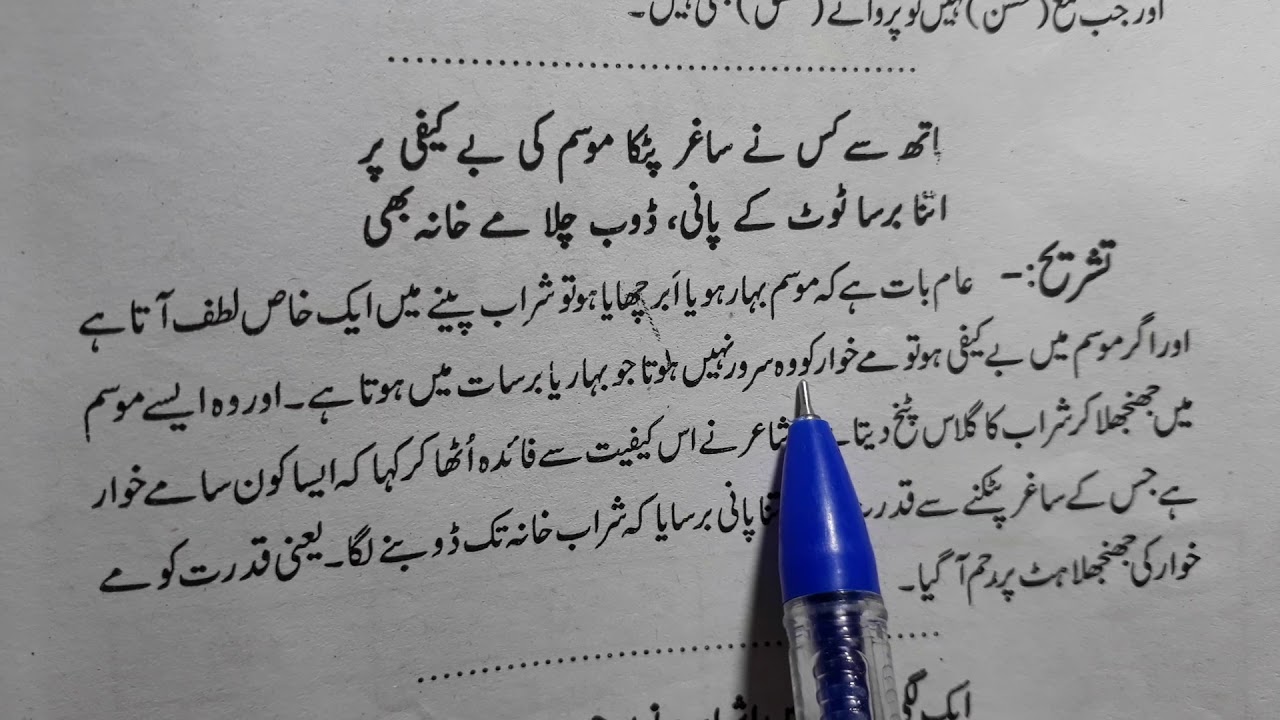 اور جب شمع (حسن) نہیں تو پروانے (عشق) بھی نہیں۔
اتھ سے کس نے ساغر پٹکا موسم کی بے کیفی پر
اتنا برسا ٹوٹ کے پانی، ڈوب چلا مے خانہ بھی
تشریح:۔ عام بات ہے کہ موسم بہار ہو یا اَبر چھایا ہو تو شراب پینے میں ایک خاص لطف آتا ہے
اور اگر موسم میں بے کیفی ہو تو مے خوار کو وہ سرور نہیں ہوتا جو بہار یا برسات میں ہوتا ہے۔ اور وہ ایسے موسم
میں جھنجھلا کر شراب کا گلاس پٹخ دیتا شاعر نے اس کیفیت سے فائدہ اُٹھا کر کہا کہ ایسا کون سا مے خوار
ہے جس کے ساغر پٹکنے سے پانی برسایا کہ شراب خانہ تک ڈوبنے لگا۔ یعنی قدرت کو مے
خوار کی جھنجھلاہٹ پر رحم آ گیا۔
ایک